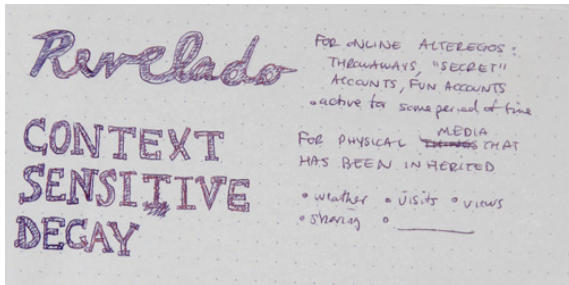 Revelado
CONTEXT
SENSITIVE
DECAY
FOR ONLINE ALTEREGOS:
THROWAWAYS, "SECRET"
ACCOUNTS, FUN ACCOUNTS
• active for some period of time
MEDIA
FOR PHYSICAL THINGS THAT
HAS BEEN INHERITED
• weather • visits • views
• sharing • ________